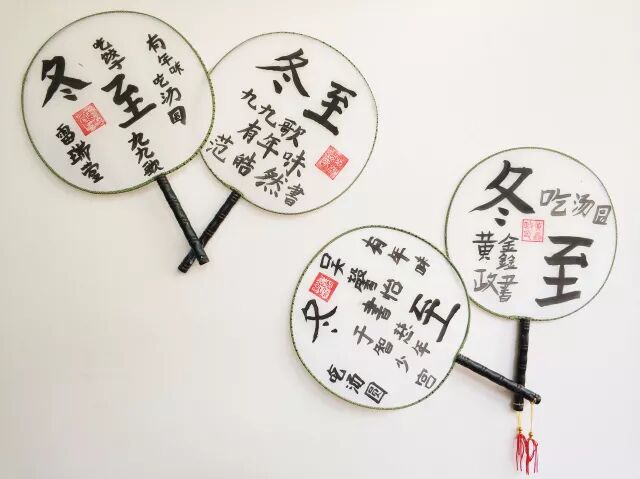 冬至
吃饺子
有年味
吃汤圆
九九歌
雷瑞
冬至
九九歌
有年味
范皓然書
冬至
有年味
吴馨怡書
于智慧少年宫
吃汤圆
冬至
吃汤圆
黄政
金鑫書